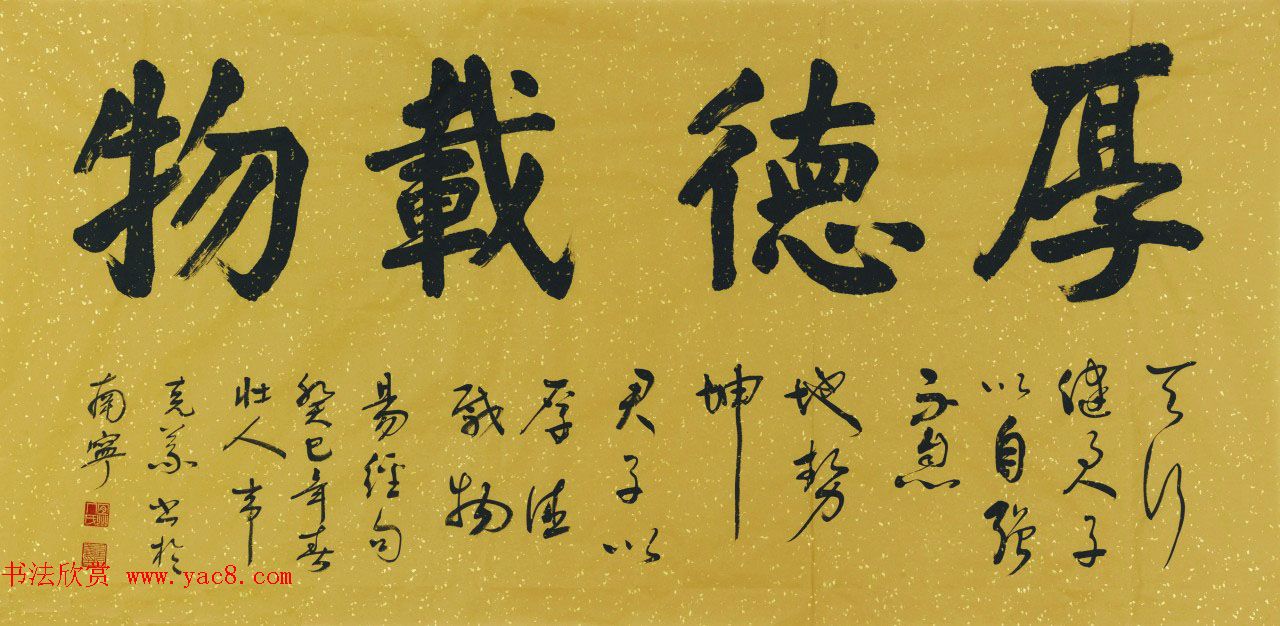 厚德載物
天行
健君子
以自强
不息
地势
坤
君子以
厚德
载物
易經句
癸巳年春
壮人韦
克义书於
南寧
书法欣赏 www.yac8.com